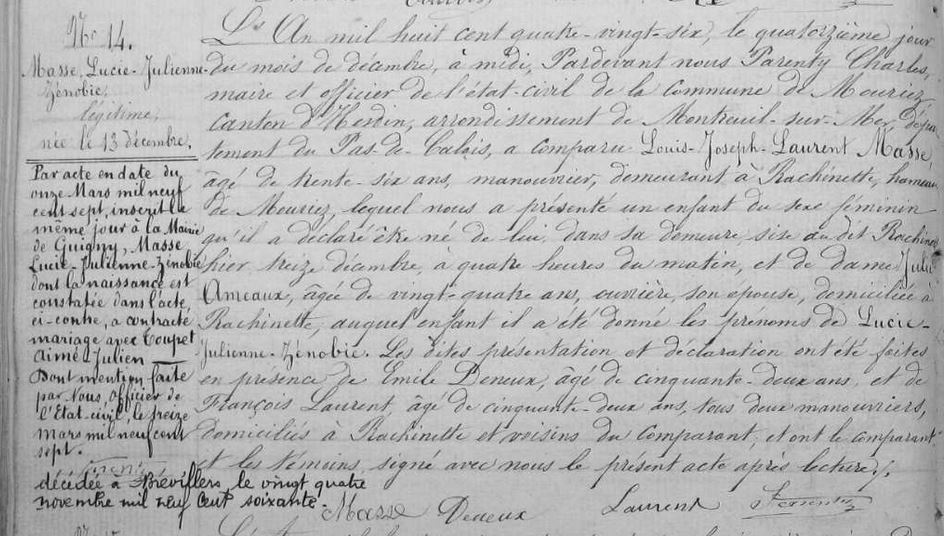 No 14.
Masse, Lucie-Julienne-
Zénobie,
légitime,
née le 13 décembre.
Par acte en date du
onze Mars mil neuf
cent sept, inscrit le
même jour à la Mairie
de Guigny, Masse
Lucie-Julienne-Zénobie
dont la naissance est
constatée dans l'acte
ci-contre, a contracté
mariage avec Toupet
Aimé-Julien —
Dont mention faite
par Nous, Officier de
l'Etat-civil, le treize
Mars mil neuf cent
sept.
décédée à Brévillers le vingt quatre
novembre mil neuf cent soixante.
L'An mil huit cent quatre-vingt-six, le quatorzième jour
du mois de décembre, à midi, Pardevant nous Parenty Charles,
maire et officier de l'état-civil de la commune de Mouriez
Canton d'Hesdin, arrondissement de Montreuil-sur-Mer, dépar
tement du Pas-de-Calais, a comparu Louis-Joseph-Laurent Masse
âgé de trente-six ans, manouvrier, demeurant à Rachinette, hameau
de Mouriez, lequel nous a présenté un enfant du sexe féminin
qu'il a déclaré être né de lui, dans sa demeure, sise au dit Rachinette
hier, treize décembre, à quatre heures du matin, et de dame Julie
Ameaux, âgée de vingt-quatre ans, ouvrière, son épouse, domiciliée à
Rachinette, auquel enfant il a été donné les prénoms de Lucie-
Julienne-Zénobie. Les dites présentation et déclaration ont été faites
en présence de Emile Deneux, âgé de cinquante-deux ans, et de
François Laurent, âgé de cinquante-deux ans, tous deux manouvriers,
domiciliés à Rachinette et voisins du comparant, et ont le comparant
et les témoins, signé avec nous le présent acte après lecture.
Masse Deneux Laurent Parenty